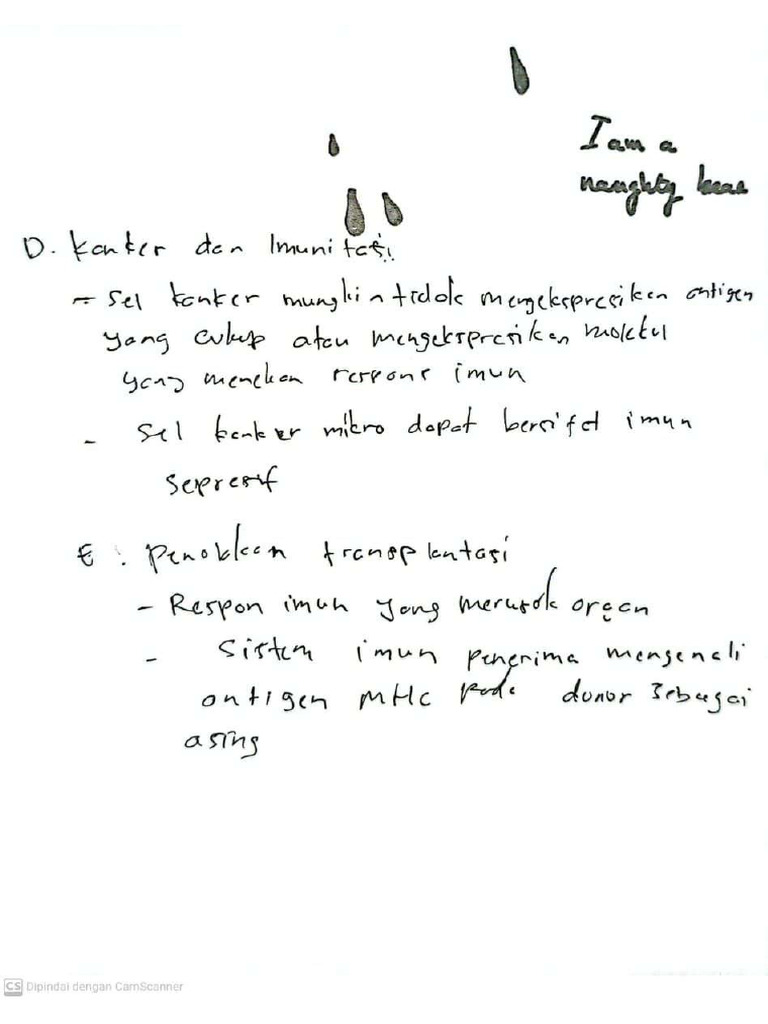 I am a
naughty
D. Kanker dan Imunitas
- Sel kanker mungkin tidak mengekspresikan antigen
yang cukup atau mengekspresikan molekul
yang menekan respons imun
- Sel kanker mikro dapat bersifat imun
sepresif
E. Penolakan transplantasi
- Respon imun yang merusak organ
- Sistem imun penerima mengenali
antigen MHC pada donor sebagai
asing
CS Dipindai dengan CamScanner